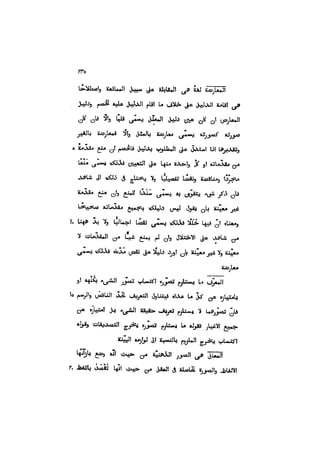 ٢٣٥
المعارضة لغة هى المقابلة على سبيل الممانعة واصطلاحا
هى اقامة الدليل على خلاف ما اقام الدليل عليه الخصم ودليل
المعارض ان كان عين دليل المعلل يسمى قلبا والا فان كان
صورته كصورته يسمى معارضة بالمثل والا فمعارضة بالغير
وتقديرها اذا استدل على المطلوب بدليل فالخصم ان منع مقدمة ٥
من مقدماته او كل واحدة منها على التعيين فذلك يسمى منعا
مجردا ومناقضة ونقضا تفصيليا ولا يحتاج فى ذلك الى شاهد
فان ذكر شىء يتقوى به يسمى سندا للمنع وان منع مقدمة
غير معينة بان يقول ليس دليلك بجميع مقدماته صحيحا
ومعناه ان فيها خللا فذلك يسمى نقضا اجماليا ولا بد فهنا ١٠
من شاهد على الاختلال وان لم يمنع شيئا من المقدمات لا
معينة ولا غير معينة بان اورد دليلا على نقض مدعاه فذلك يسمى
معارضة
المعرف ما يستلزم تصوره اكتساب تصور الشىء بكنهه او
بامتيازه عن كل ما عداه فيتناول التعريف الحد الناقص والرسم ١٥
فان تصورهما لا يستلزم تعريف حقيقة الشىء بل امتيازه عن
جميع الاغيار فقوله ما يستلزم تصوره يخرج التصديقات وقوله
اكتساب يخرج الملزوم بالنسبة الى لوازمه البينة
المعانى هى الصور الذهنية من حيث انه وضع بازائها
الالفاظ والصورة الحاصلة فى العقل من حيث انها تقصد باللفظ ٢٠